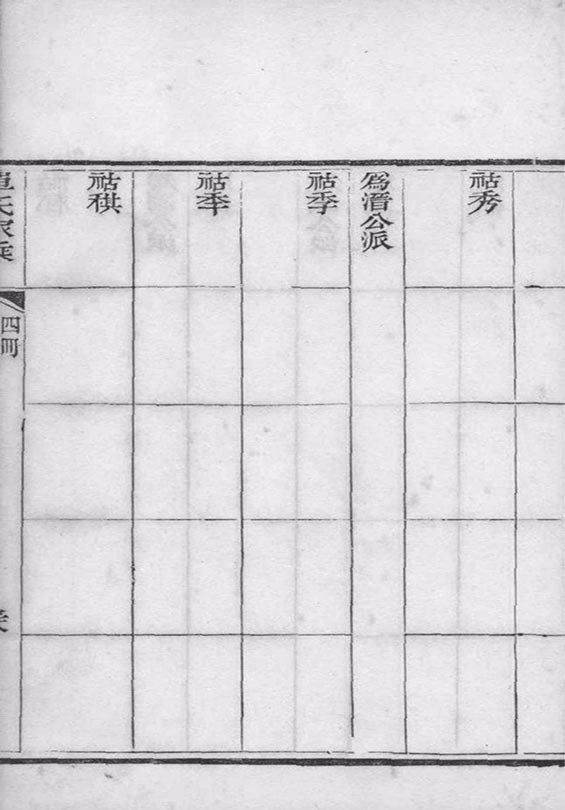 祜秀
爲潛公派
祜季
祜秊
祜稘
氏家乘
四冊